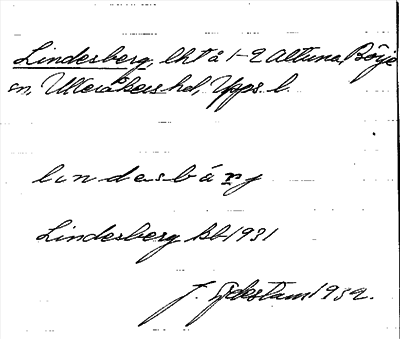 Lindesberg, lht å 1-2 Altuna, Börje
sn, Ulleråkers hd, Upps. l.
lindesbärj
Lindesberg Bb 1931
F. 1952.